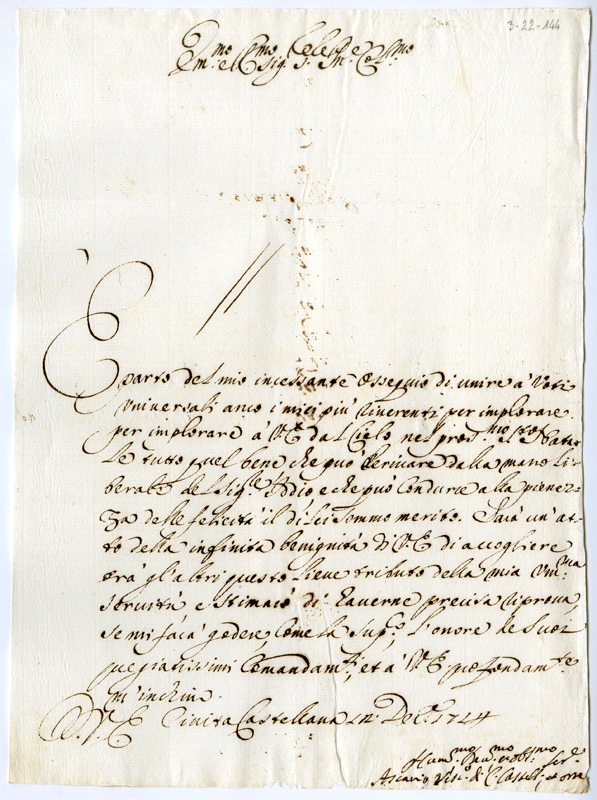 3-22-144
Em:mo e R:mo Sig:
È parto del mio incessante Ossequio di unire a' Voti
Universali anco i miei più riverenti per implorare
per implorare à V.E. dal Cielo nel pross:mo Nata
le tutto quel bene che può derivare dalla mano li
berale del Sig:re Iddio e che può condurre alla pienez
za delle felicità il di Lei Sommo merito. Sarà un'at
to della infinita benignità di V.E. di accogliere
trà gl'altri questo lieve tributo della mia Um:ma
servitù e stimarò di haverne precisa riprova,
se mi farà godere, come la sup:co l'onore de Suoi
pregiatissimi Comandam:ti, et à V.E. profondam:te
m'inchino.
D. V. E. Civita Castellana Dec: 1724
Hum:mo Dev:mo et obl:mo Ser:
Ascanio Ves:o di C. Castell: et Orte